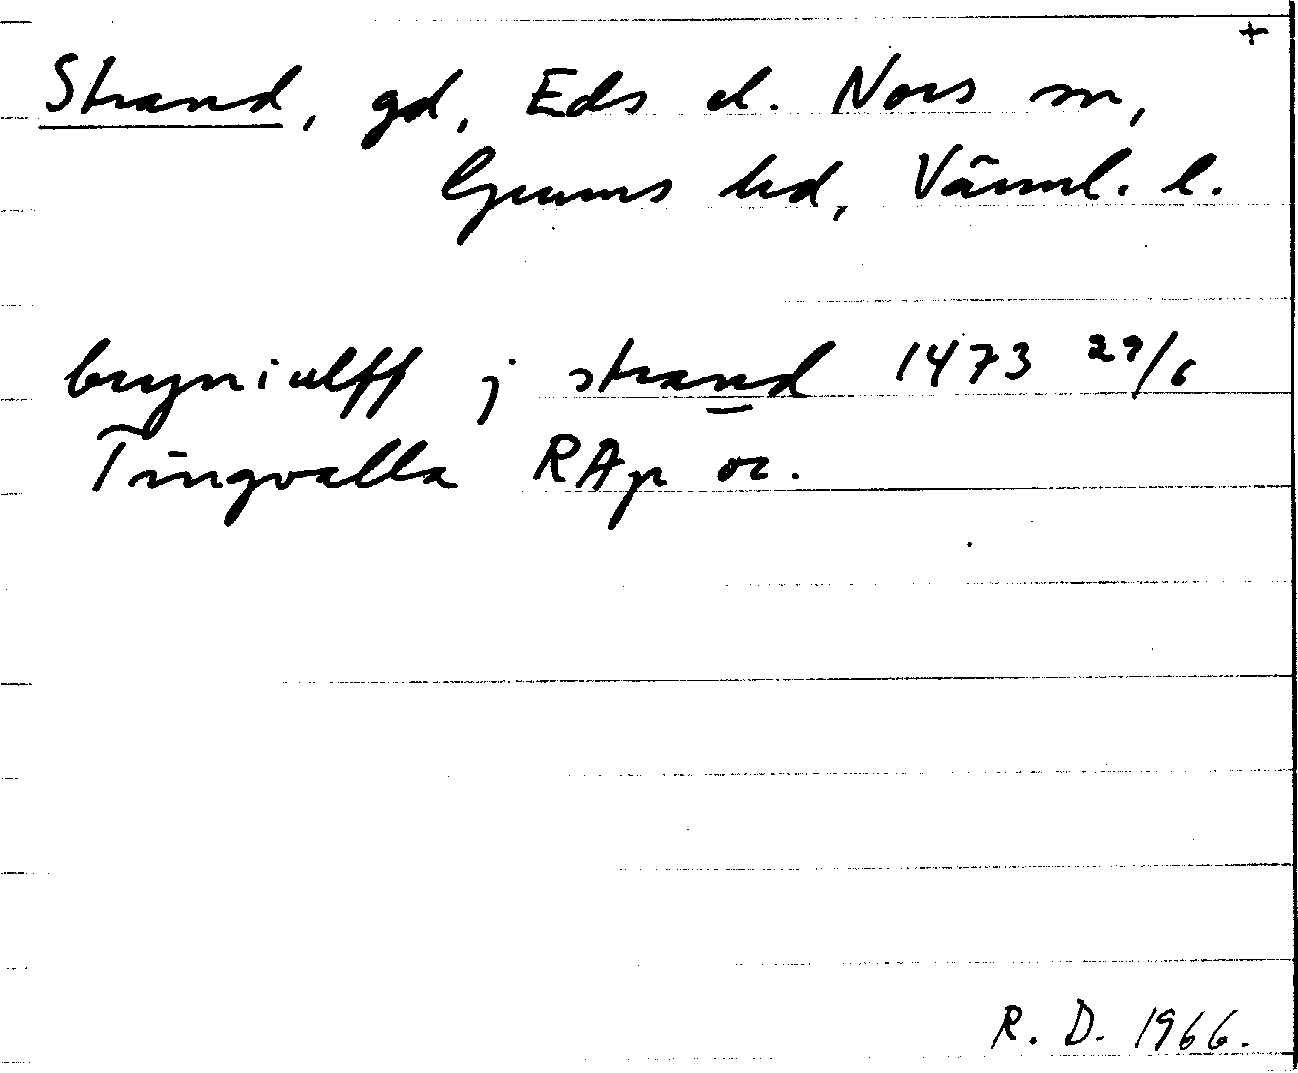 +
Strand, gd, Eds el. Nors sn,
Grums hd, Värml. l.
bryniulff j strand 1473 29/6
Tingvalla RAp or.
R. D. 1966.